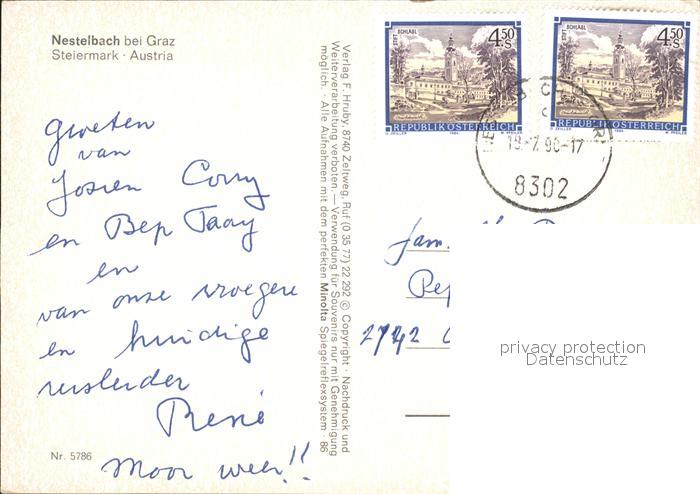 Nestelbach bei Graz
Steiermark · Austria
groeten
van
Josien Corry
en Bep Taay
en
van onze vroegere
en huidige
reisleider
René
Mooi weer!!
Nr. 5786
Verlag F. Hruby, 8740 Zeltweg, Ruf (0 35 77) 22 292 © Copyright · Nachdruck und
Weiterverarbeitung verboten. — Verwendung für Souvenirs nur mit Genehmigung
möglich. · Alle Aufnahmen mit dem perfekten Minolta Spiegelreflexsystem · 86
4,50 S
STIFT SCHLÄGL
REPUBLIK ÖSTERREICH
O. ZEILLER 1984 W. PFEILER
4,50 S
STIFT SCHLÄGL
REPUBLIK ÖSTERREICH
O. ZEILLER 1984 W. PFEILER
8302
fam.
2742
privacy protection
Datenschutz